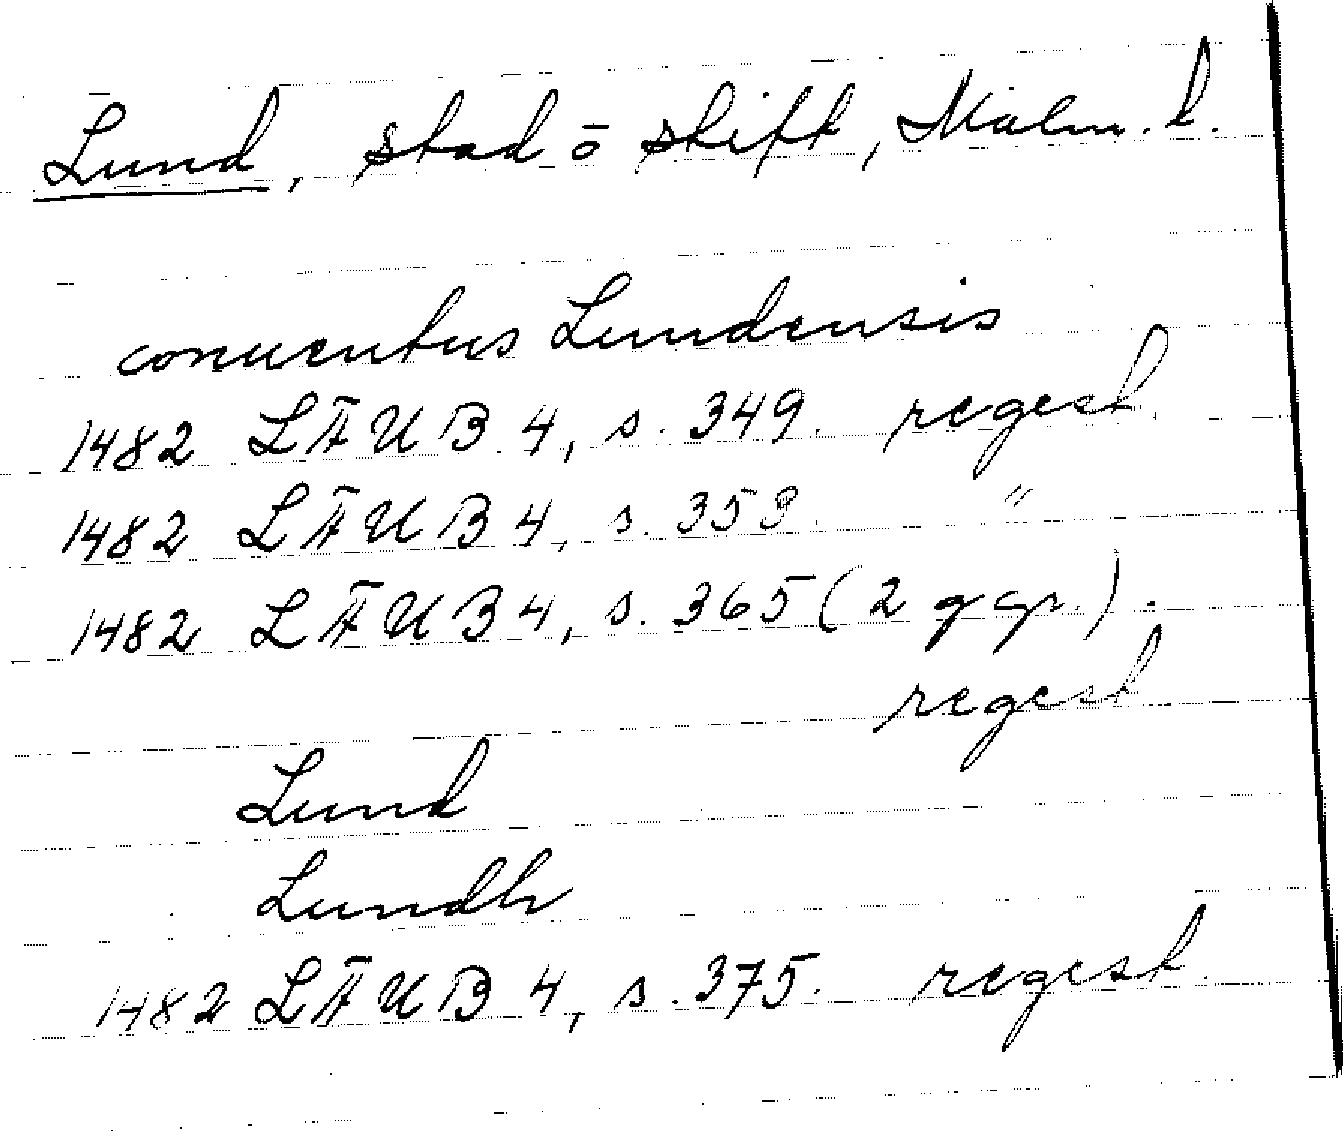 Lund, stad o skift, Malm. l.
conuentus Lundensis
1482 LÄUB 4, s. 349. regest.
1482 LÄUB 4, s. 353. "
1482 LÄUB 4, s. 365 (2 ggr.).
regest
Lund
Lundh
1482 LÄUB 4, s. 375. regest.